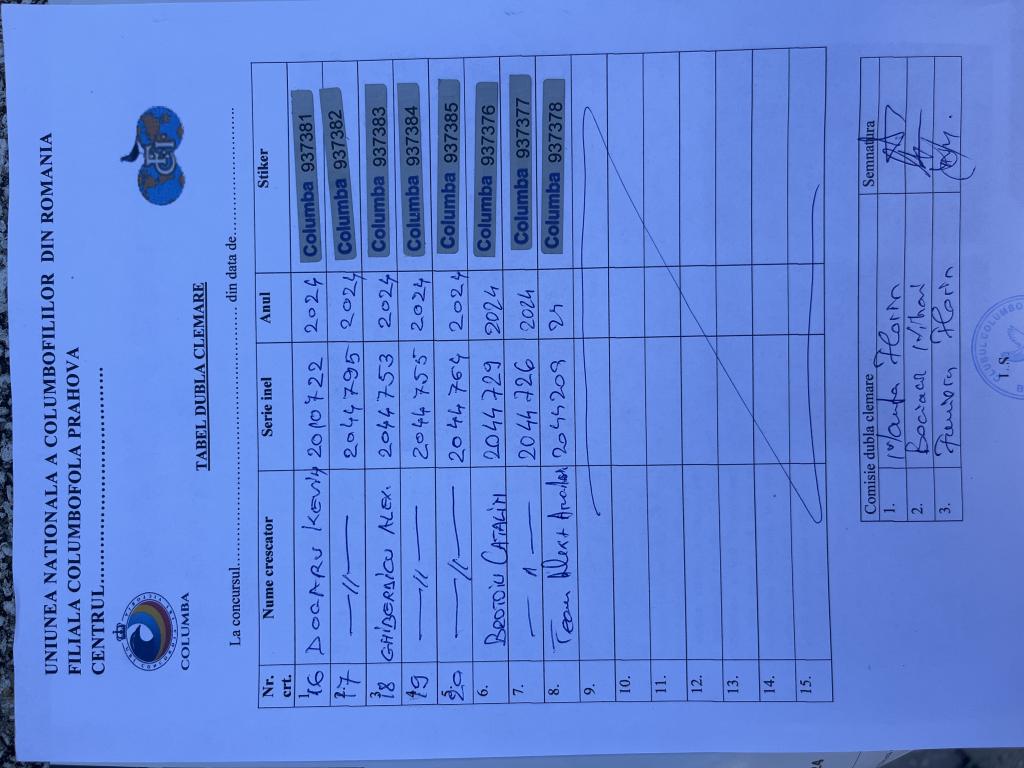 UNIUNEA NATIONALA A COLUMBOFILILOR DIN ROMANIA
FILIALA COLUMBOFOLA PRAHOVA
CENTRUL.................................
COLUMBA
TABEL DUBLA CLEMARE
La concursul........................................................... din data de..............................
Nr. crt. Nume crescator Serie inel Anul Stiker
16 2010722 2024 Columba 937381
17 —//— 2044795 2024 Columba 937382
18 2044753 2024 Columba 937383
19 —//— 2044755 2024 Columba 937384
20 —//— 2044764 2024 Columba 937385
6. CATALIN 2044729 2024 Columba 937376
7. 2044726 2024 Columba 937377
8. Team 2044209 24 Columba 937378
9.
10.
11.
12.
13.
14.
15.
Comisie dubla clemare Semnatura
1. Florin
2. Mihai
3. Florin
L.S.